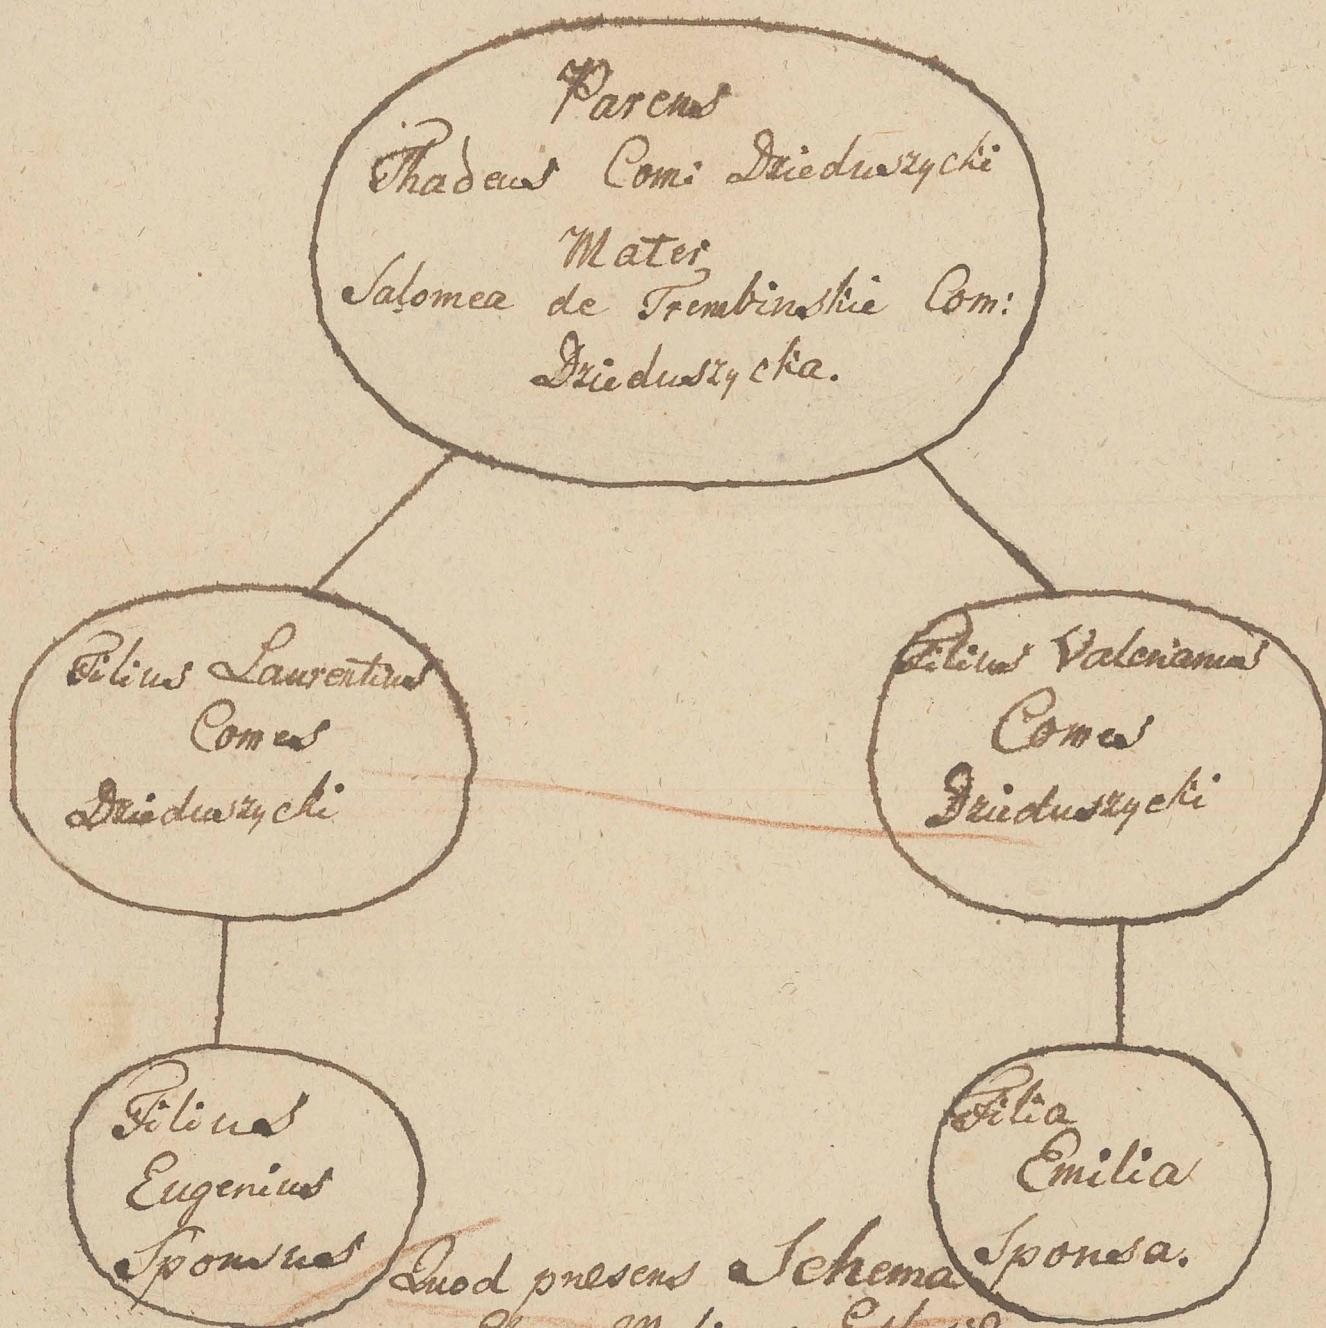 Parens
Thadeus Com: Dzieduszycki
Mater
Salomea de Trembinskie Com:
Dzieduszycka.
Filius Laurentius
Comes
Dzieduszycki
Filius Valerianus
Comes
Dzieduszycki
Filius
Eugenius
Sponsus
Filia
Emilia
Sponsa.
Quod presens Schema